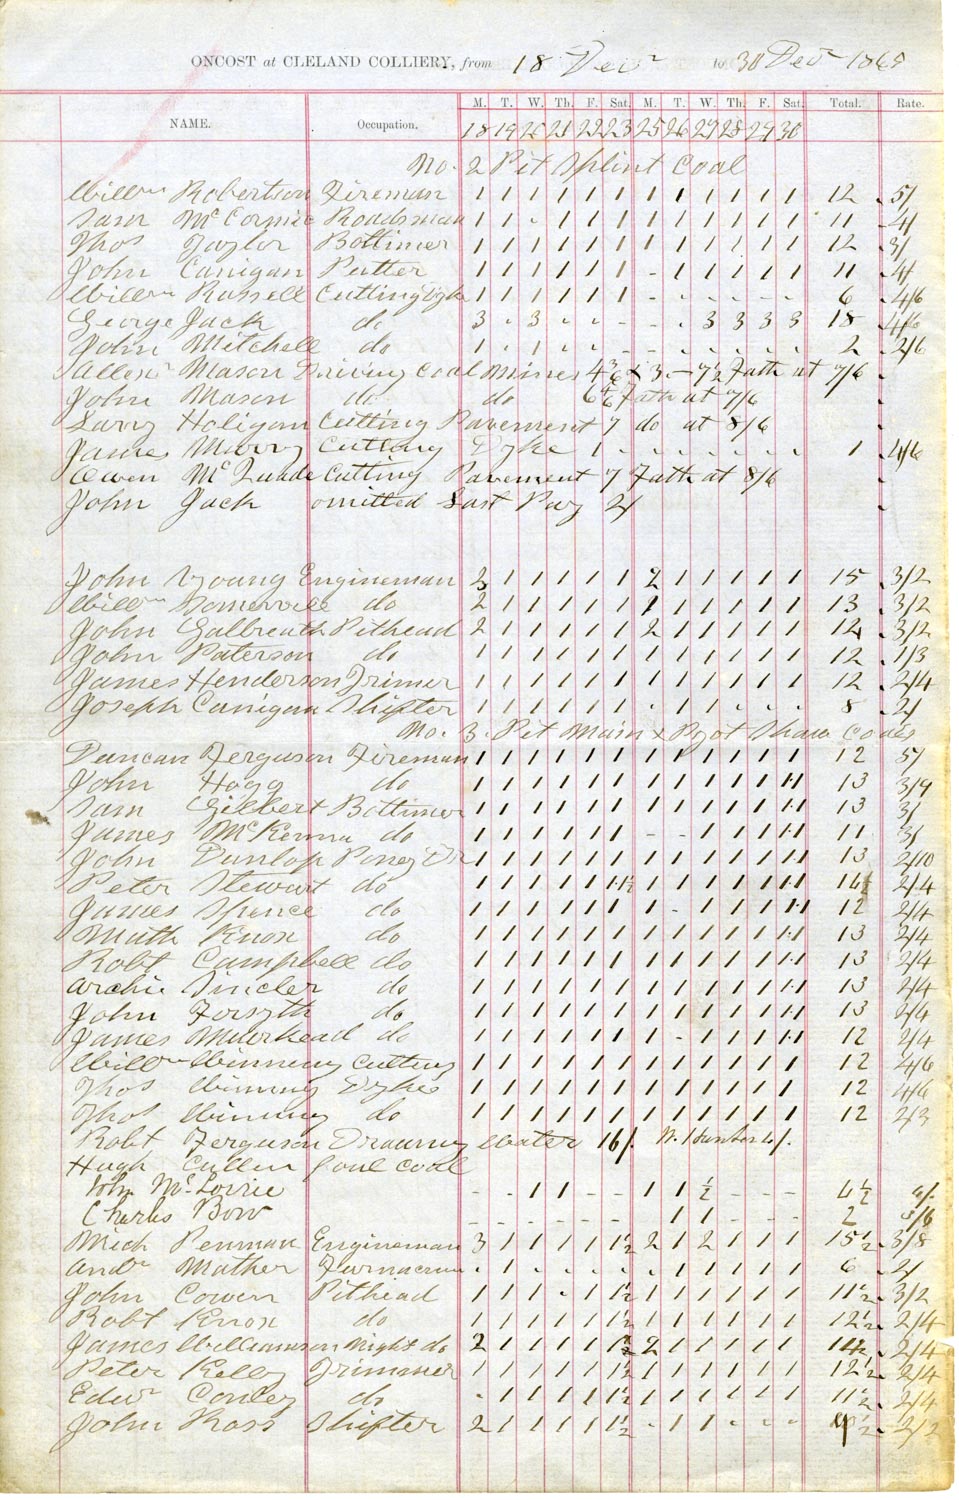 ONCOST at CLELAND COLLIERY, from 18 Decr to 30 Decr 1865
NAME. Occupation. M. T. W. Th. F. Sat. M. T. W. Th. F. Sat. Total. Rate.
18 19 20 21 22 23 25 26 27 28 29 30
No. 2 Pit Splint Coal
Willm Robertson Fireman 1 1 1 1 1 1 1 1 1 1 1 1 12 5/
Sam McCormic Roadsman 1 1 . 1 1 1 1 1 1 1 1 1 11 4/
Thos Taylor Bottimer 1 1 1 1 1 1 1 1 1 1 1 1 12 3/
John Canigan Putter 1 1 1 1 1 1 - 1 1 1 1 1 11 4/
Willm Russell Cutting Dyke 1 1 1 1 1 1 - - - - - - 6 4/6
George Jack do 3 . 3 . . - - . 3 3 3 3 18 4/6
John Mitchell do 1 . 1 . . - - . . . . . 2 2/6
Allexr Mason Driving Coal Mines 7/6
John Mason do do Fath at 7/6
Larry Holigan Cutting Pavement 7 do at 8/6
James Murry Cutting Dyke 1 . . . . . . . 1 4/6
Owen McQuade Cutting Pavement 7 Fath at 8/6
John Jack omitted Last Pay 2/
John Young Engineman 3 1 1 1 1 1 2 1 1 1 1 1 15 3/2
Willm Somerville do 2 1 1 1 1 1 1 1 1 1 1 1 13 3/2
John Galbreath Pithead 2 1 1 1 1 1 2 1 1 1 1 1 12 3/2
John Paterson do 1 1 1 1 1 1 1 1 1 1 1 1 12 1/3
James Henderson Trimer 1 1 1 1 1 1 1 1 1 1 1 1 12 2/4
Joseph Canigan Shifter 1 1 1 1 1 1 . 1 1 . . . 8 2/
No. 3. Pit Main & Pyot Shaw Coals
Duncan Ferguson Fireman 1 1 1 1 1 1 1 1 1 1 1 1 12 5/
John Hogg do 1 1 1 1 1 1 1 1 1 1 1 1.1 13 3/9
Sam Gilbert Bottimer 1 1 1 1 1 1 1 1 1 1 1 1.1 13 3/
James McKenna do 1 1 1 1 1 1 - - 1 1 1 1.1 11 3/
John Dunlop Poney Dr 1 1 1 1 1 1 1 1 1 1 1 1.1 13 2/10
Peter Stewart do 1 1 1 1 1 1.1½ 1 1 1 1 1 1.1 2/4
James Spence do 1 1 1 1 1 1 1 - 1 1 1 1.1 12 2/4
Math Knox do 1 1 1 1 1 1 1 1 1 1 1 1.1 13 2/4
Robt Campbell do 1 1 1 1 1 1 1 1 1 1 1 1.1 13 2/4
Archie Sincler do 1 1 1 1 1 1 1 1 1 1 1 1.1 13 2/4
John Forsyth do 1 1 1 1 1 1 1 1 1 1 1 1.1 13 2/4
James Muirhead do 1 1 1 1 1 1 1 - 1 1 1 1.1 12 2/4
Willm Winning Cutting 1 1 1 1 1 1 1 1 1 1 1 1 12 4/6
Thos Winning Dykes 1 1 1 1 1 1 1 1 1 1 1 1 12 4/6
Thos Winning do 1 1 1 1 1 1 1 1 1 1 1 1 12 2/3
Robt Ferguson Drawing Water 16/.
Hugh Cullen foul coal
John McLovrie - - 1 1 - - 1 1 ½ - - - 4½ 4/.
Charles Bow - - - - - - - 1 1 - - - 2 3/6
Mich Penman Engineman 3 1 1 1 1 1½ 2 1 2 1 1 1 15½ 3/8
Andw Mather Furnaceman . 1 . . . . . 1 1 1 1 1 6 2/
John Cowen Pithead 1 1 1 . 1 1½ 1 1 1 1 1 1 11½ 3/2
Robt Knox do 1 1 1 1 1 1½ 1 1 1 1 1 1 12½ 2/4
James Williamson Night do 2 1 1 1 1 1½ 2 1 1 1 1 1 14½ 2/4
Peter Kelly Trimmer 1 1 1 1 1 1½ 1 1 1 1 1 1 12½ 2/4
Edwr Conley do . 1 1 1 1 1½ 1 1 1 1 1 1 11½ 2/4
John Ross Shifter 2 1 1 1 1 1½ . 1 1 . . . 9½ 2/2